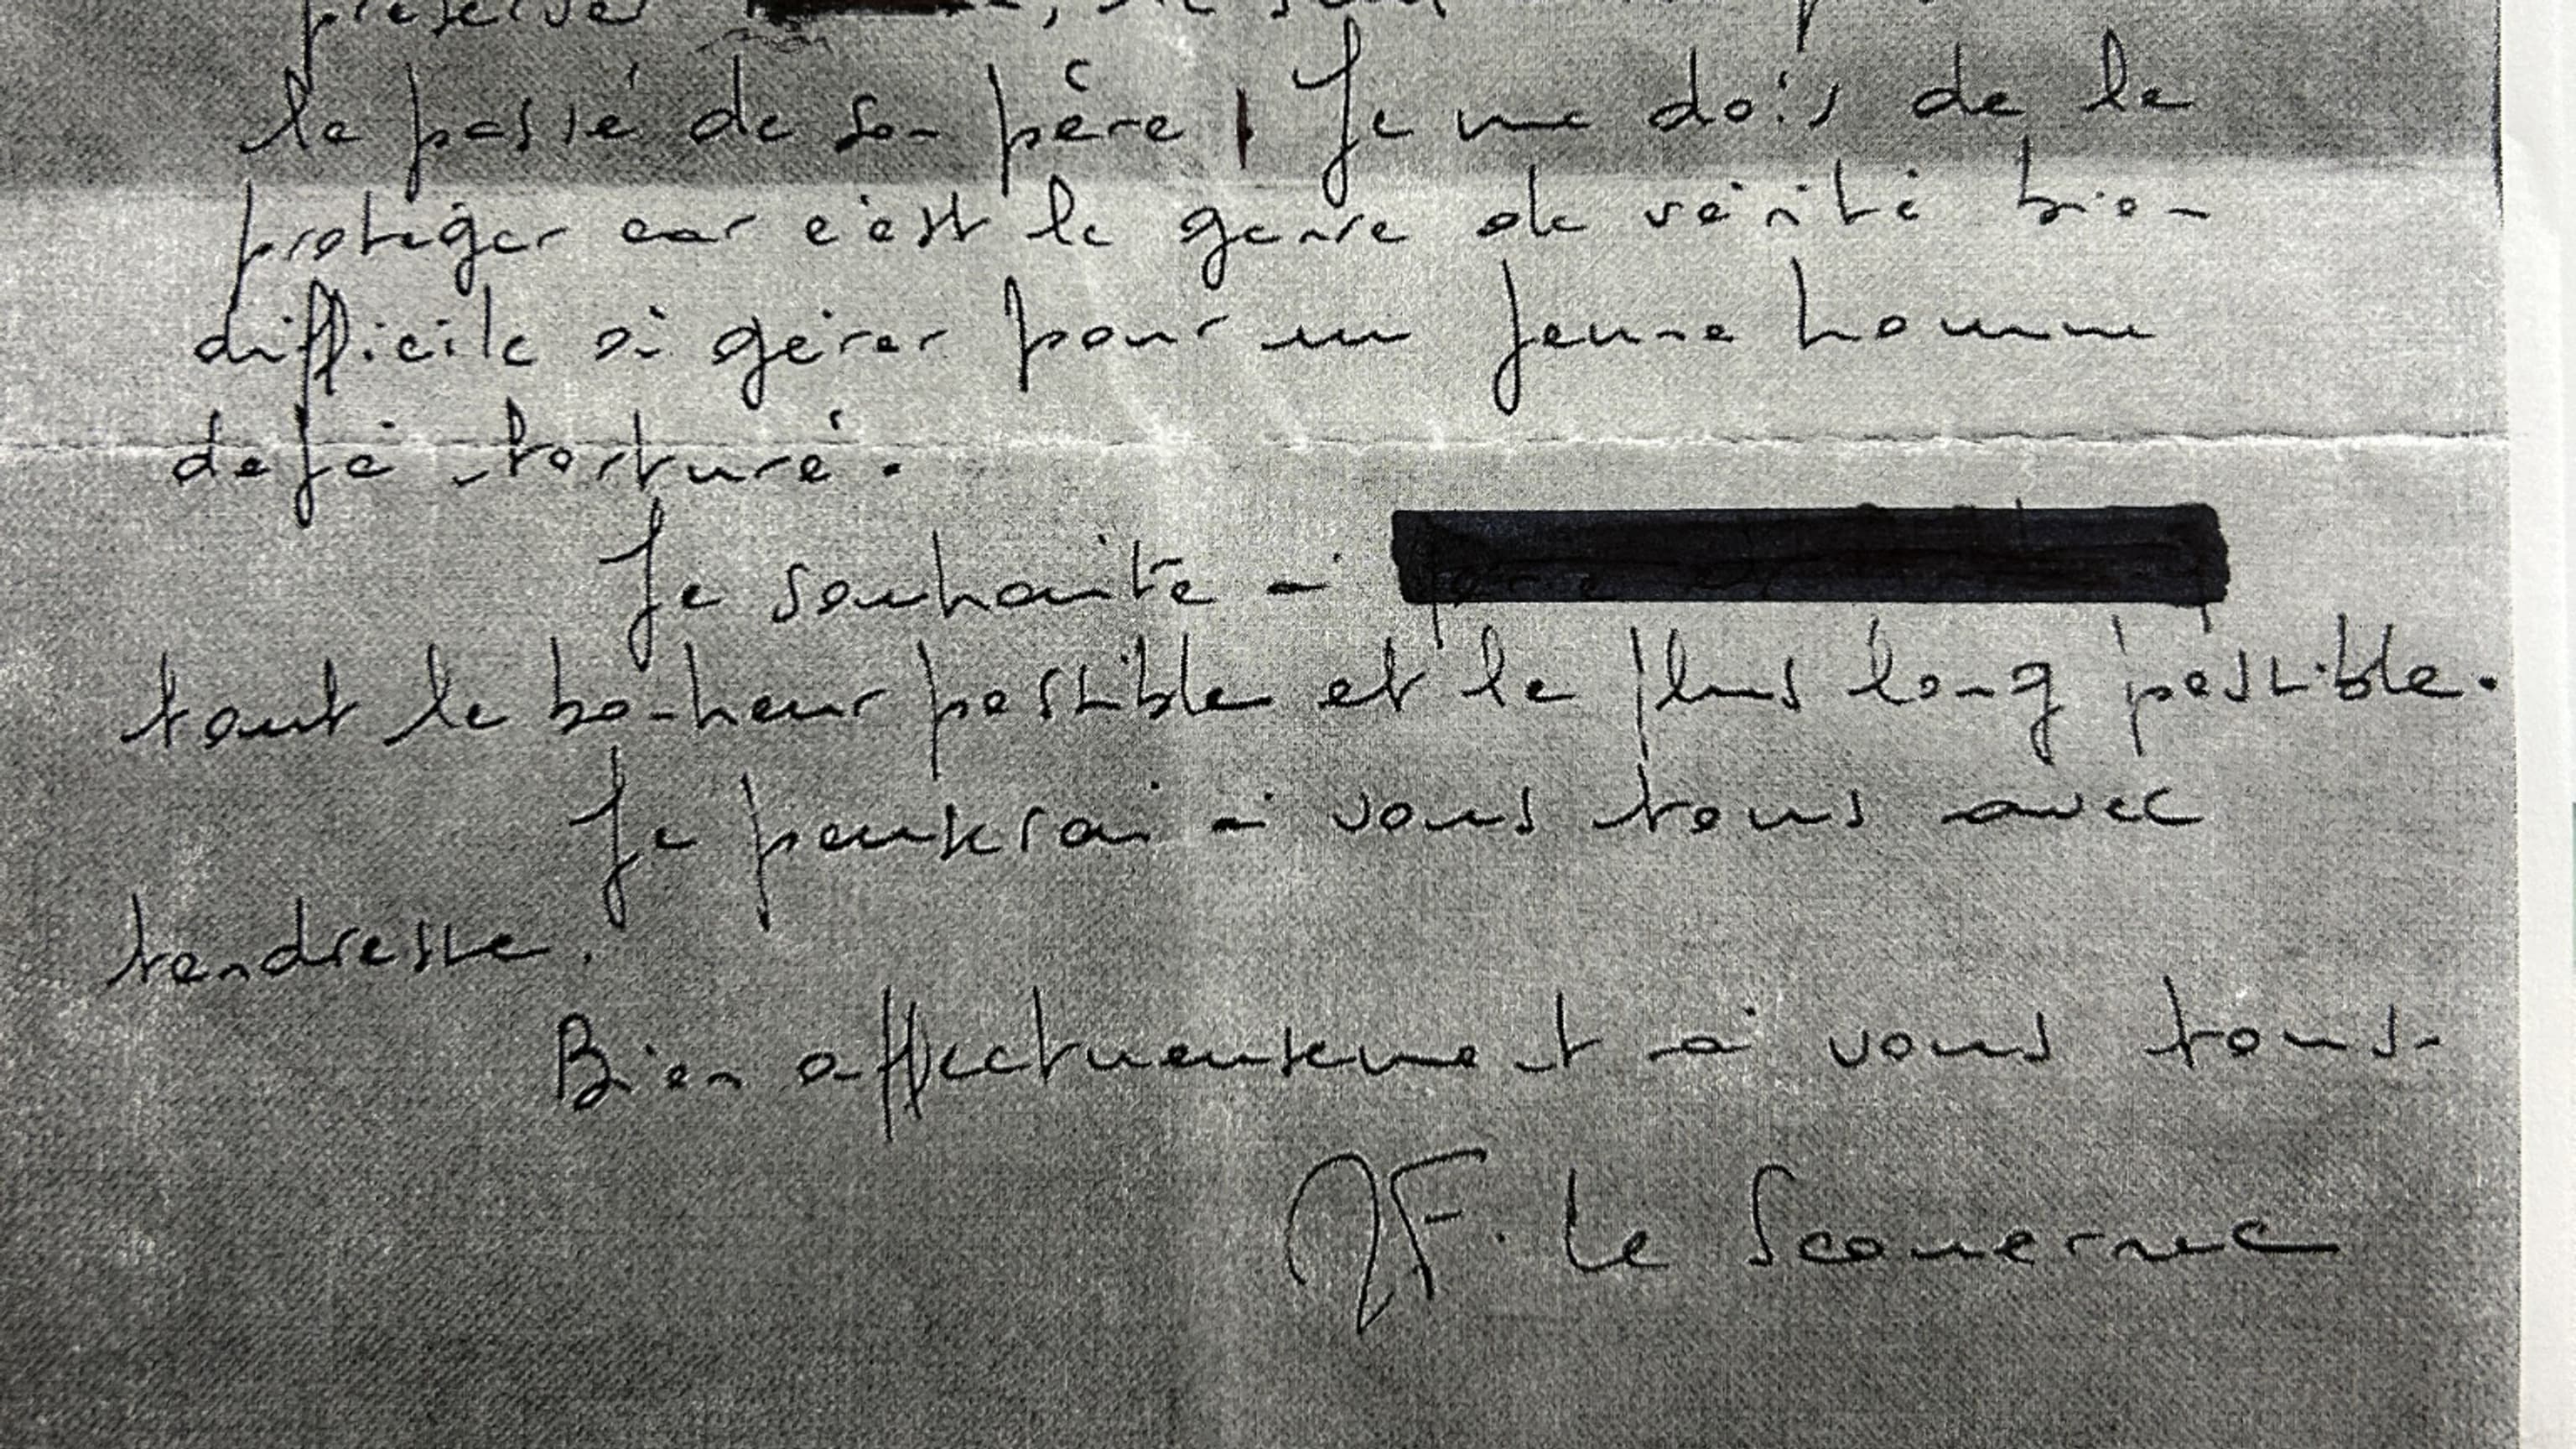 préserver
le passé de son père. Je me dois de le
protéger car c'est le genre de vérité bien
difficile à gérer pour un jeune homme
déjà torturé.
Je souhaite à
tout le bonheur possible et le plus long possible.
Je penserai à vous tous avec
tendresse.
Bien affectueusement à vous tous.
JF. Le Scouernec